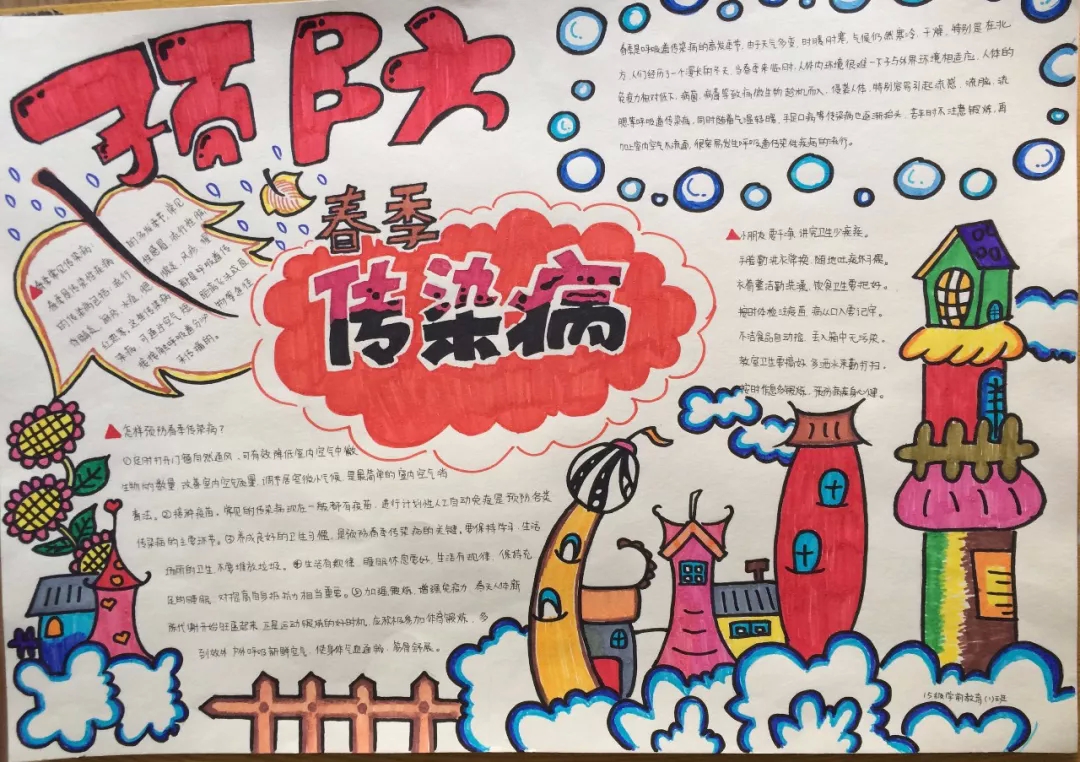 预防
春季
传染病
春季是呼吸道传染病的高发季节,由于天气多变,时暖时寒,气候仍然寒冷、干燥,特别是在北
方,人们经历了一个漫长的冬天,当春季来临时,人体内环境很难一下子与外界环境相适应,人体的
免疫力相对低下,病菌、病毒等致病微生物趁机而入,侵袭人体,特别容易引起流感、流脑、流
腮等呼吸道传染病,同时随着气温转暖,手足口病等传染病也逐渐抬头,若平时不注意锻炼,再
加上室内空气不流通,很容易发生呼吸道传染性疾病的流行。
小朋友要牢记,讲究卫生少疾病。
手脏勤洗衣常换,随地吐痰坏习惯。
不喝董活勤洗通,饮食卫生要把好。
按时体检注疫苗,病从口入要记牢。
不洁食品自动捡,丢入箱中无污染。
教室卫生要搞好,多洒水来勤打扫。
按时作息多锻炼,预防疾病身心健。
春季常见传染病:
怎样预防春季传染病?
①定时打开门窗自然通风,可有效降低室内空气中微
生物的数量,改善室内空气质量,调节居室微小气候,是最简单的室内空气消
毒法。②接种疫苗。常见的传染病现在一般都有疫苗,进行计划性人工自动免疫是预防各类
传染病的主要环节。③养成良好的卫生习惯,是预防春季传染病的关键。要保持学习、生活
场所的卫生,不要堆放垃圾。④生活有规律,睡眠休息要好,生活有规律,保持充
足的睡眠,对提高自身抵抗力相当重要。⑤加强锻炼,增强免疫力,春天人体新
陈代谢开始旺盛起来,正是运动锻炼的好时机,应积极参加体育锻炼,多
到户外呼吸新鲜空气,使身体气血通畅,筋骨舒展。
15级学前教育(1)班